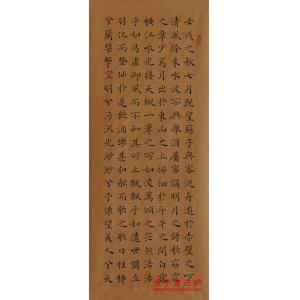 壬戌之秋七月既望蘇子與客泛舟遊於赤壁之下
清風徐來水波不興舉酒屬客誦明月之詩歌窈窕
之章少焉月出於東山之上徘徊於斗牛之間白露
橫江水光接天縱一葦之所如凌萬頃之茫然浩浩
乎如馮虛御風而不知其所止飄飄乎如遺世獨立
羽化而登仙於是飲酒樂甚扣舷而歌之歌曰桂棹
兮蘭槳擊空明兮溯流光渺渺兮予懷望美人兮天